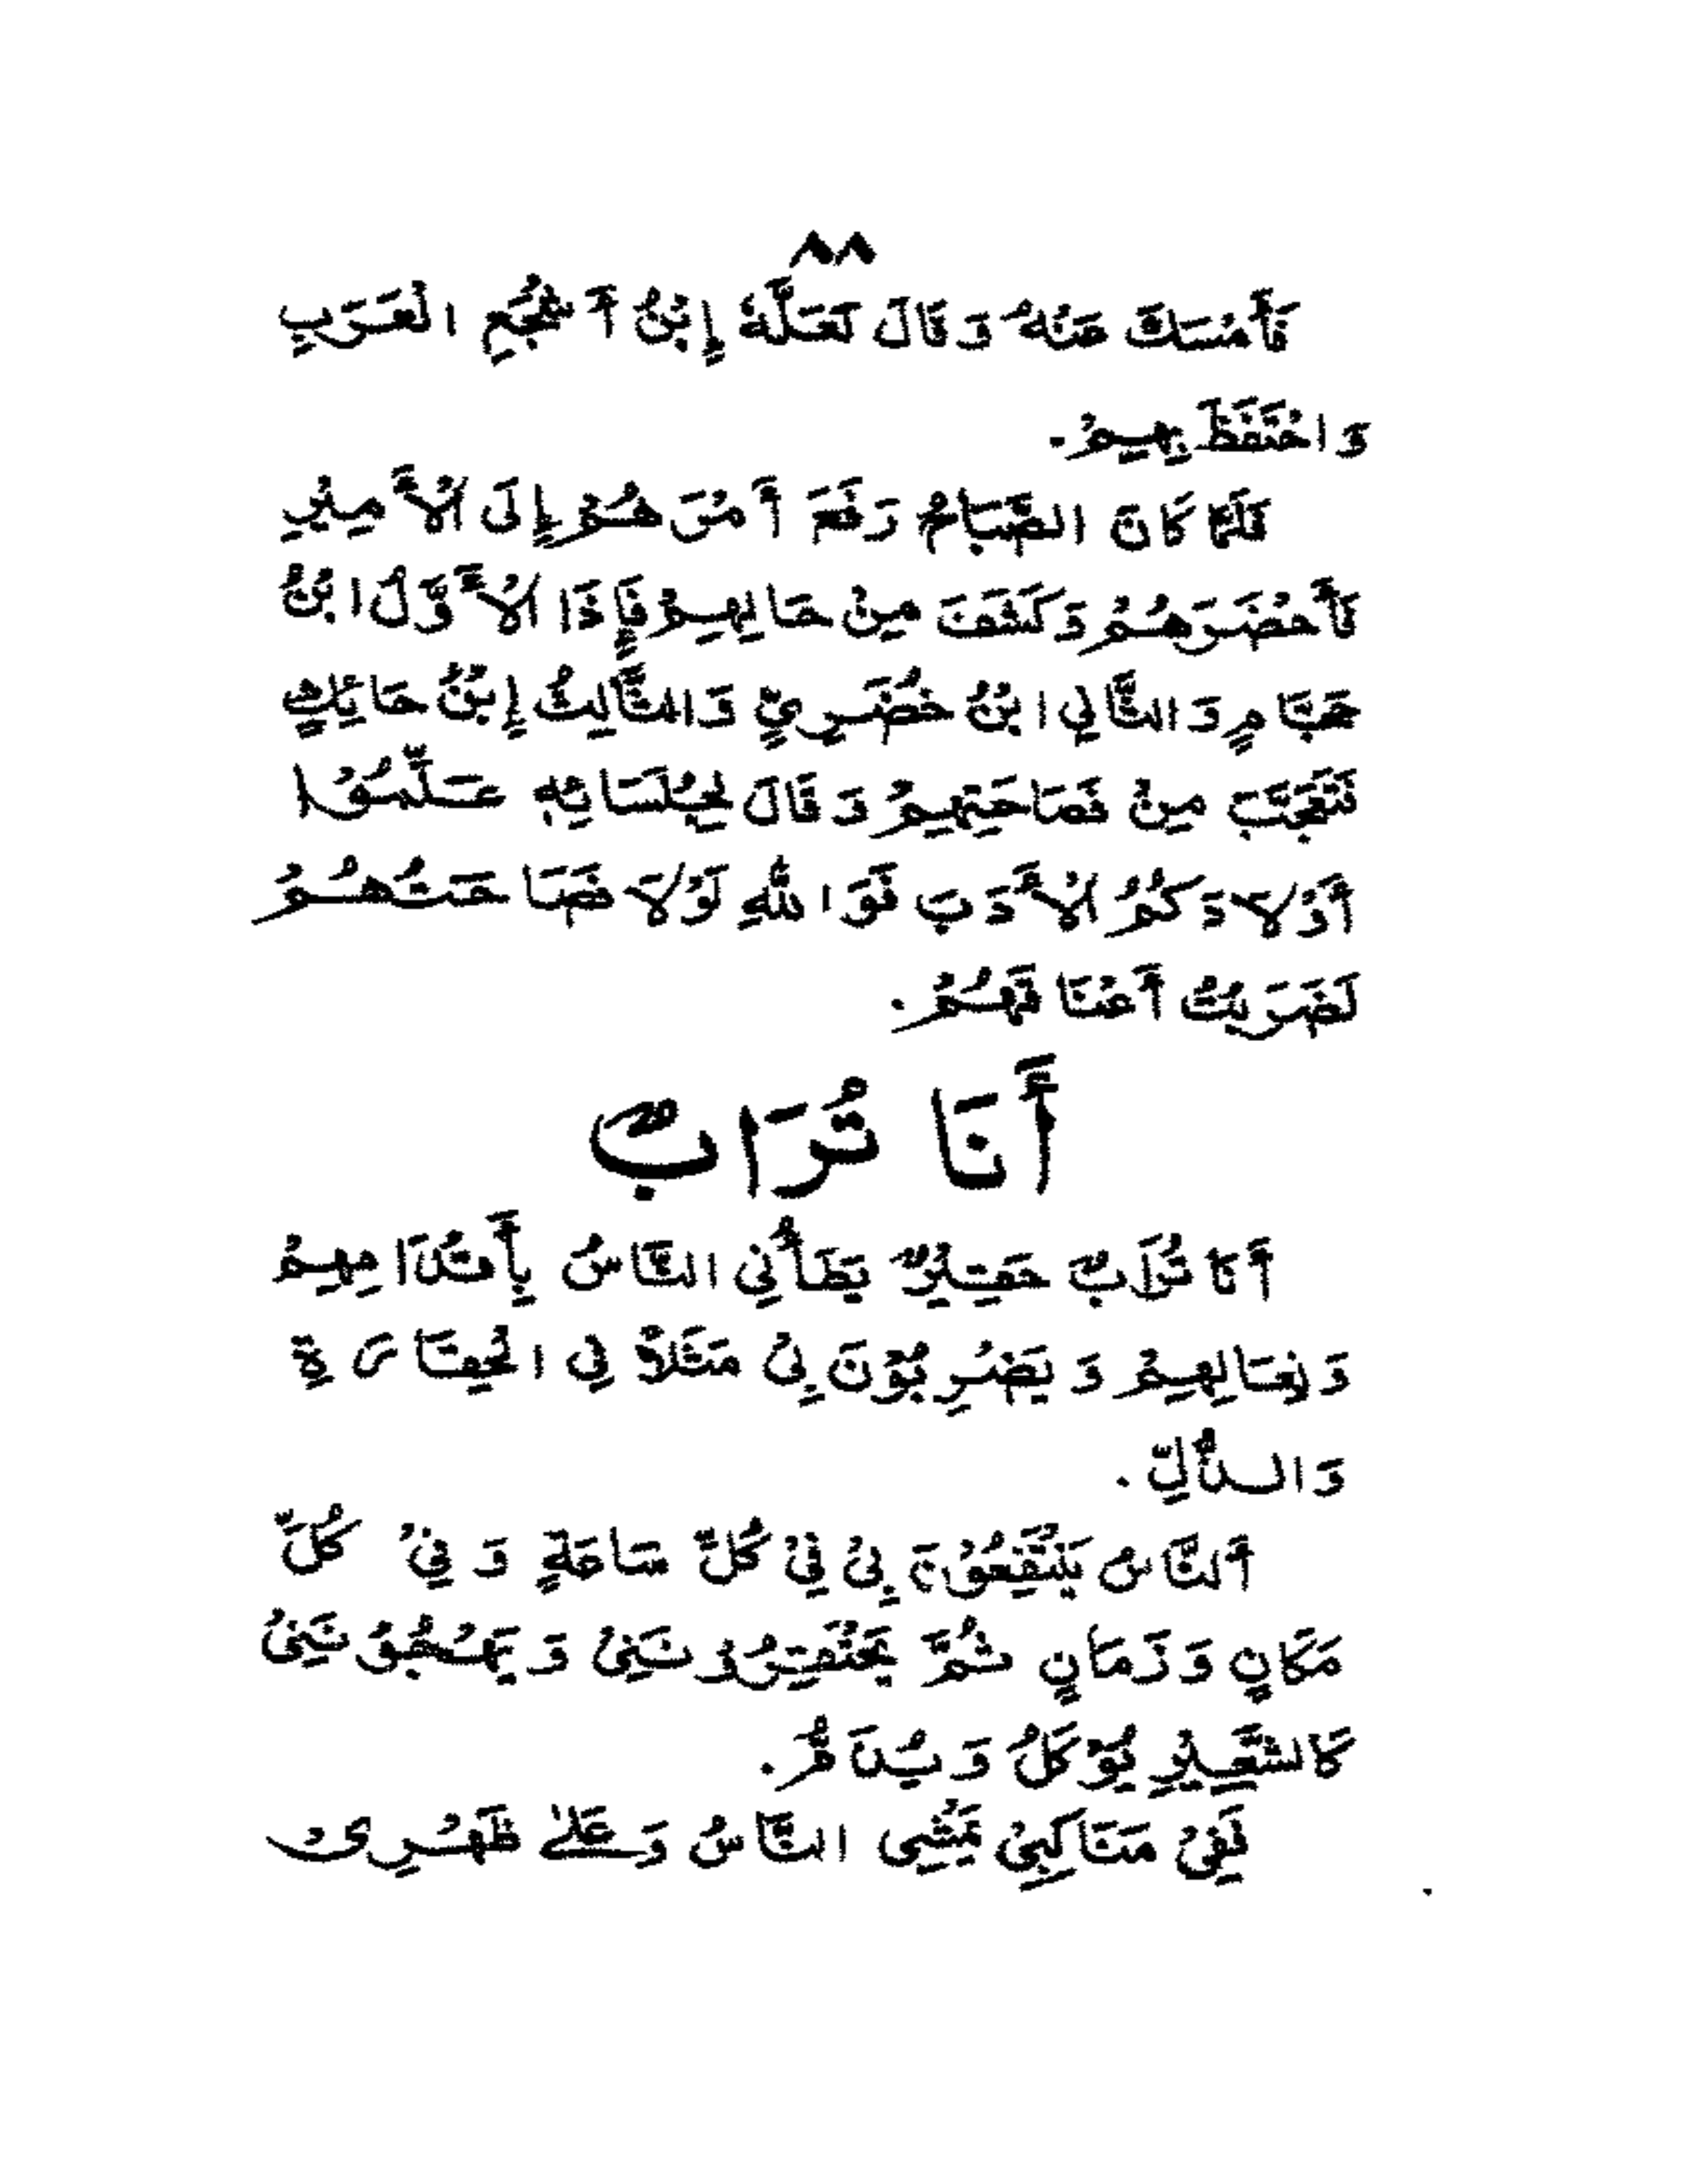 ٨٨
فَأَمْسَكَ عَنْهُ وَقَالَ لَعَلَّهُ إِبْنُ أَشْجَعِ الْعَرَبِ
وَاحْتَفَظَ بِهِمْ.
فَلَمَّا كَانَ الصَّبَاحُ رَفَعَ أَمْرَهُمْ إِلَى الْأَمِيْرِ
فَأَحْضَرَهُمْ وَكَشَفَ مِنْ حَالِهِمْ فَإِذَا الْأَوَّلُ ابْنُ
حَجَّامٍ وَالثَّانِي ابْنُ خُضَرِيٍّ وَالثَّالِثُ إِبْنُ حَائِكٍ
فَتَعَجَّبَ مِنْ فَصَاحَتِهِمْ وَقَالَ لِجُلَسَائِهِ عَلِّمُوْا
أَوْلَادَكُمُ الْأَدَبَ فَوَاللهِ لَوْلَا فَصَاحَتُهُمْ
لَضَرَبْتُ أَعْنَاقَهُمْ.
أَنَا تُرَابٌ
أَنَا تُرَابٌ حَقِيْرٌ يَطَأُنِي النَّاسُ بِأَقْدَامِهِمْ
وَنِعَالِهِمْ وَيَضْرِبُوْنَ بِيْ مَثَلًا فِي الْحِقَارَةِ
وَالذُّلِّ.
أَلنَّاسُ يَنْتَفِعُوْنَ بِيْ فِيْ كُلِّ سَاعَةٍ وَفِيْ كُلِّ
مَكَانٍ وَزَمَانٍ ثُمَّ يَحْتَقِرُوْنَنِيْ وَيَهْجُوْنَنِيْ
كَالشَّعِيْرِ يُؤْكَلُ وَيُذَمُّ.
فَفِيْ مَنَاكِبِيْ يَمْشِى النَّاسُ وَعَلَى ظَهْرِىْ